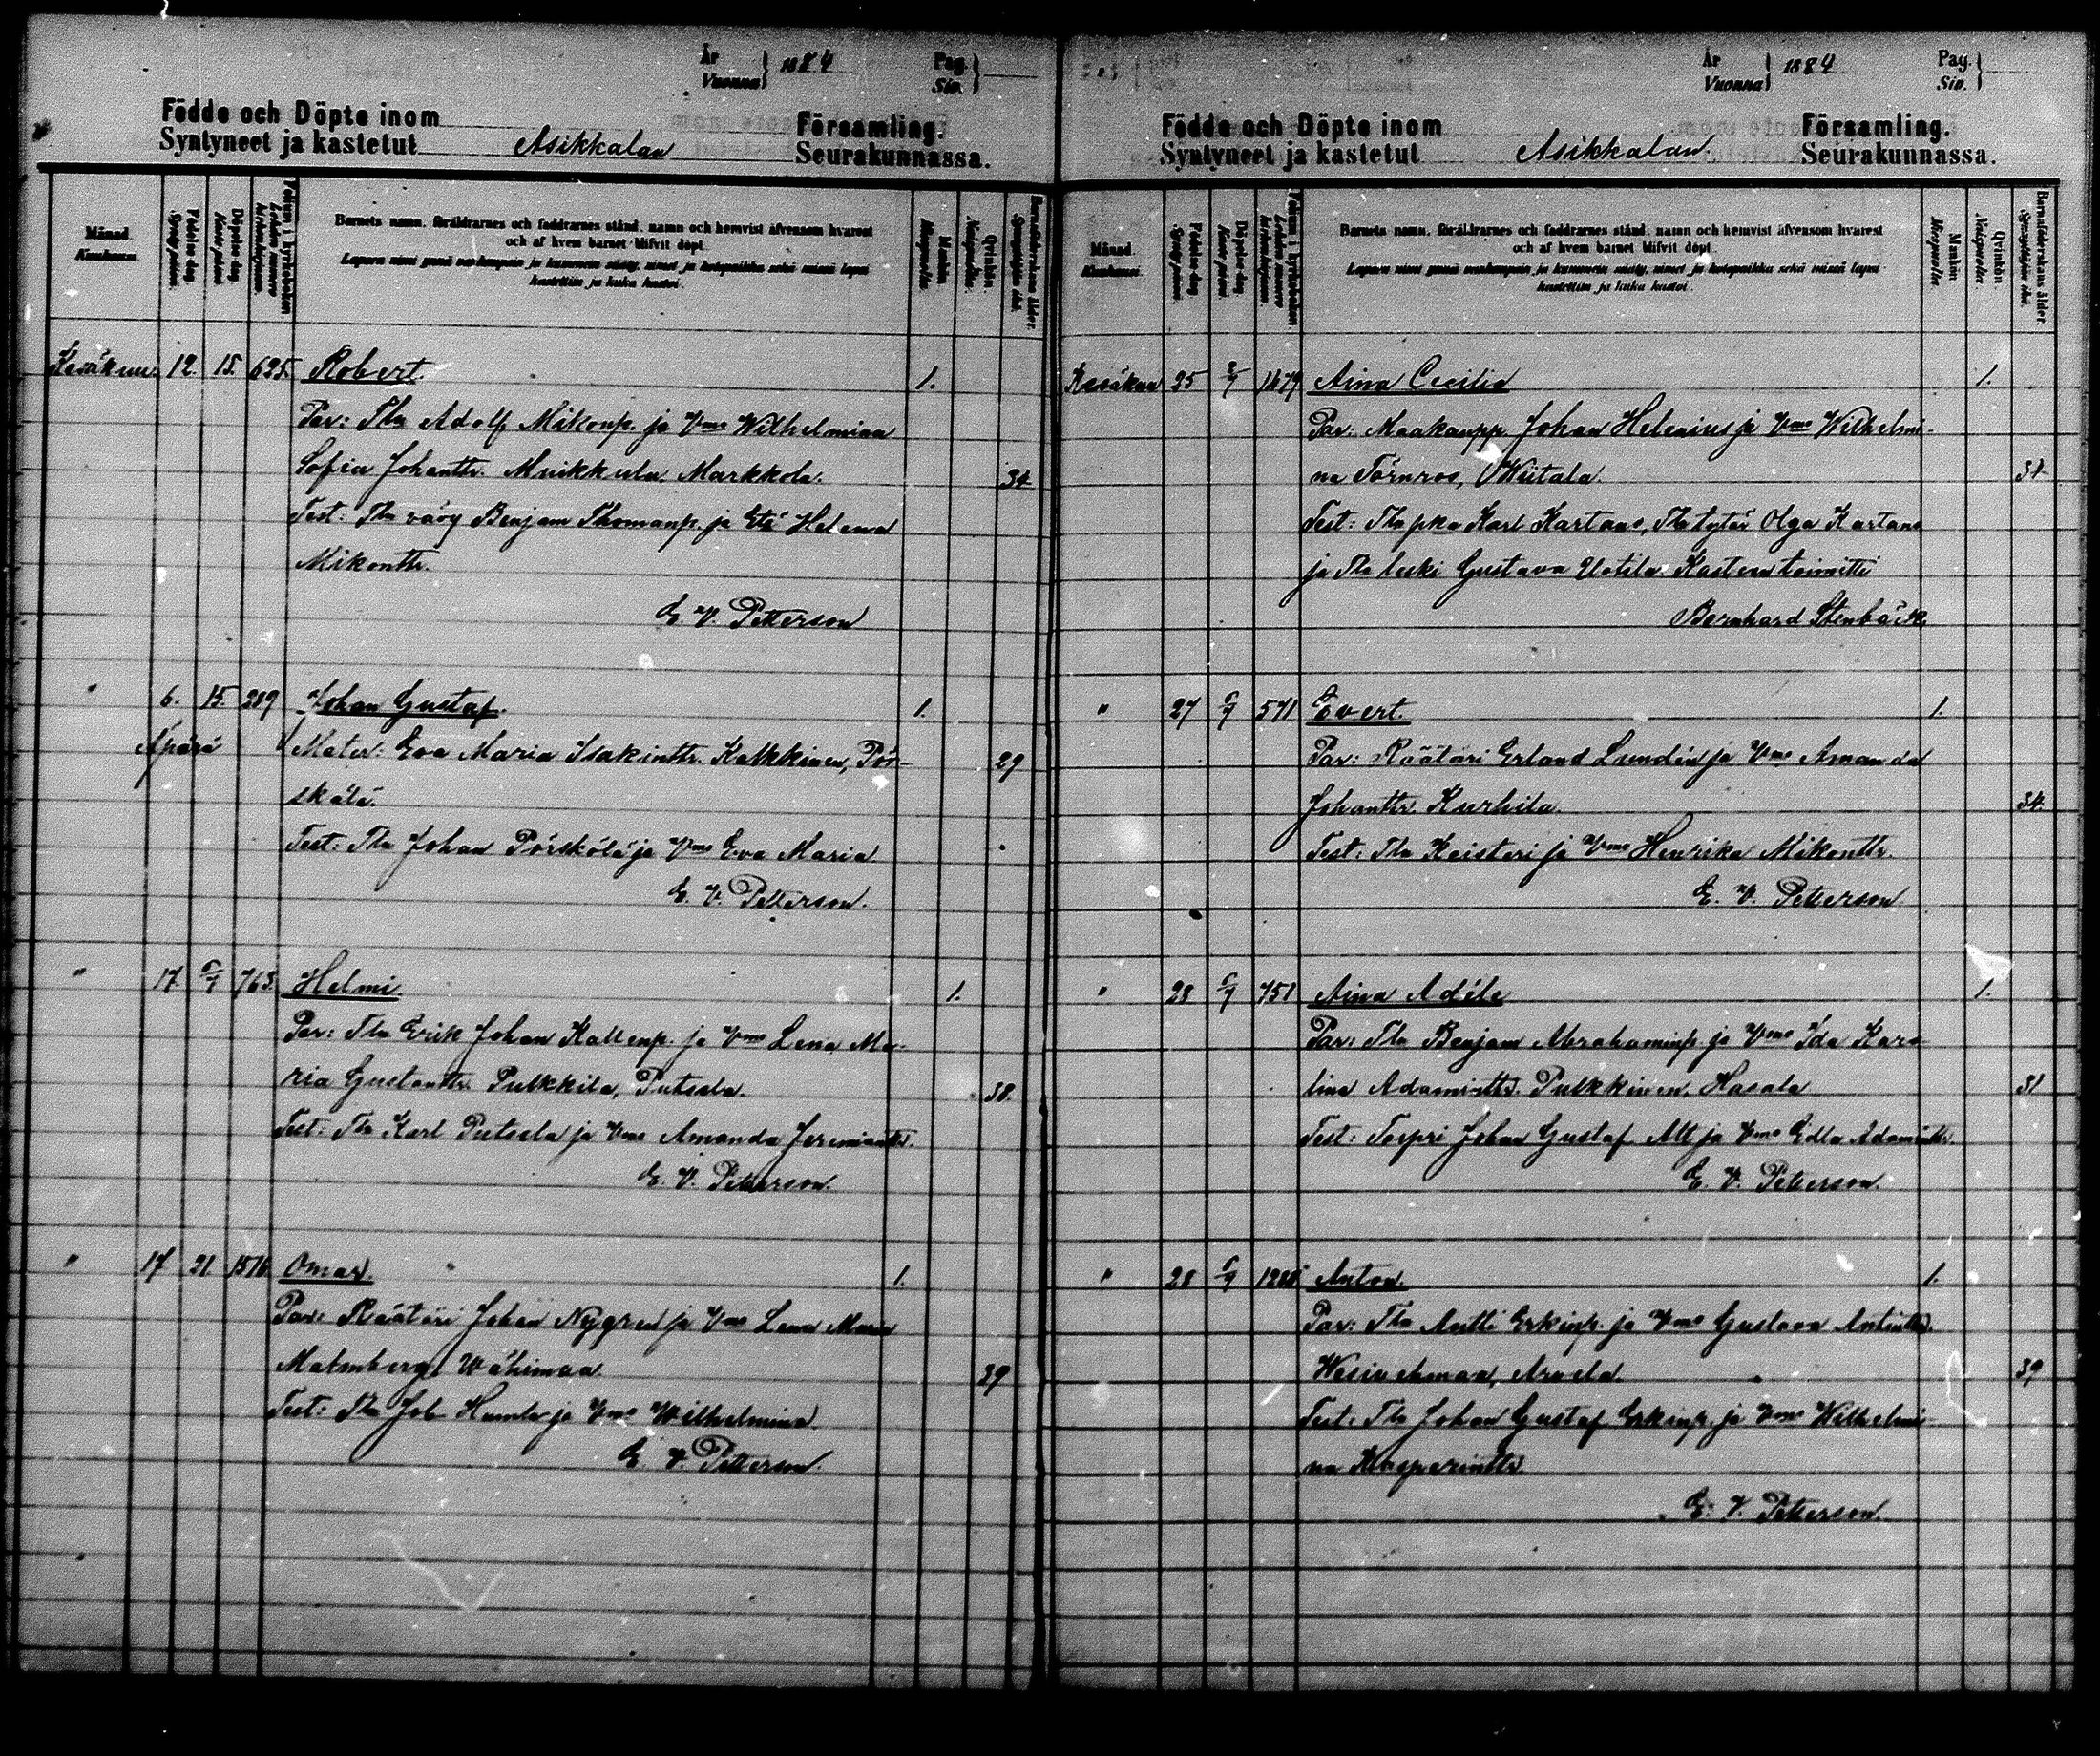 År Vuonna } 1884 Pag. Siv. }
Födde och Döpte inom Församling.
Syntyneet ja kastetut Asikkalan Seurakunnassa.
Månad. Kuukausi.
Födelse-dag. Syntypäivä.
Döpelse-dag. Kaste-päivä.
Folium i kyrkoboken
Barnets namn, föräldrarnes och faddrarnes stånd, namn och hemvist äfvensom hvarest
och af hvem barnet blifvit döpt.
Mankön Miespuolia.
Qvinkön. Naispuolia.
Barnaföderskans ålder.
Kesäkuu. 12. 15. 625. Robert. 1.
Par: Tln Adolf Mikonp. ja Vmo Wilhelmina
Sofia Johanttr. Muikkula, Markkola. 34
Test: Tln vävy Benjam Thomanp. ja Etä Helena
Mikonttr.
E. V. Petterson
" 6. 15. 289 Johan Gustaf. 1.
Äpärä Mater: Eva Maria Isakinttr. Kalkkinen, Pör- 29
skölä.
Test: Tln Johan Pörskölä ja Vmo Eva Maria
E. V. Petterson.
" 17. 6/7 763. Helmi. 1.
Par: Tln Erik Johan Kallenp. ja Vmo Lena Ma-
ria Gustanttr. Pulkkila, Putsala. 38.
Test: Tln Karl Putsala ja Vmo Amanda Jeremianttr.
E. V. Petterson.
" 17 21 1516 Omar. 1.
Par: Räätäri Johan Nygren ja Vmo Lena Maria
Malmberg, Wähimaa. 29
Test: Tln Joh. Humla ja Vmo Wilhelmina.
E. V. Petterson.
År Vuonna } 1884 Pag. Siv. }
Födde och Döpte inom Församling.
Syntyneet ja kastetut Asikkalan. Seurakunnassa.
Månad. Kuukausi.
Födelse-dag. Syntypäivä.
Döpelse-dag. Kaste-päivä.
Folium i kyrkoboken
Barnets namn, föräldrarnes och faddrarnes stånd, namn och hemvist äfvensom hvarest
och af hvem barnet blifvit döpt.
Mankön Miespuolia.
Qvinkön Naispuolia.
Barnaföderskans ålder.
Kesäkuu 25 1479 Aina Cecilia 1.
Par: Maakaupp. Johan Helenius ja Vmo Wilhelmi-
na Törnros, Wiitala. 31
Test: Tln pka Karl Kartano, Tln tytär Olga Kartano
ja Tln leski Gustava Uotila. Kasteen toimitti
Bernhard Stenbäck.
" 27 6/7 571 Evert. 1.
Par: Räätäri Erland Lundén ja Vmo Amanda
Johanttr. Kurhila. 34.
Test: Tln Keisteri ja Vmo Henrika Mikonttr.
E. V. Petterson.
" 28 6/7 751 Aina Adéle 1.
Par: Tln Benjam Abrahaminp. ja Vmo Ida Karo-
lina Adaminttr. Pulkkinen, Hasala 31
Test: Torpri Johan Gustaf Alt ja Vmo Edla Adaminttr.
E. V. Petterson.
" 28 6/7 1288 Anton. 1.
Par: Tln Antti Erkinp. ja Vmo Gustava Antinttr.
Wesivehmaa, Arvela 39
Test: Tln Johan Gustaf Erkinp. ja Vmo Wilhelmi-
na Kasperinttr.
E. V. Petterson.